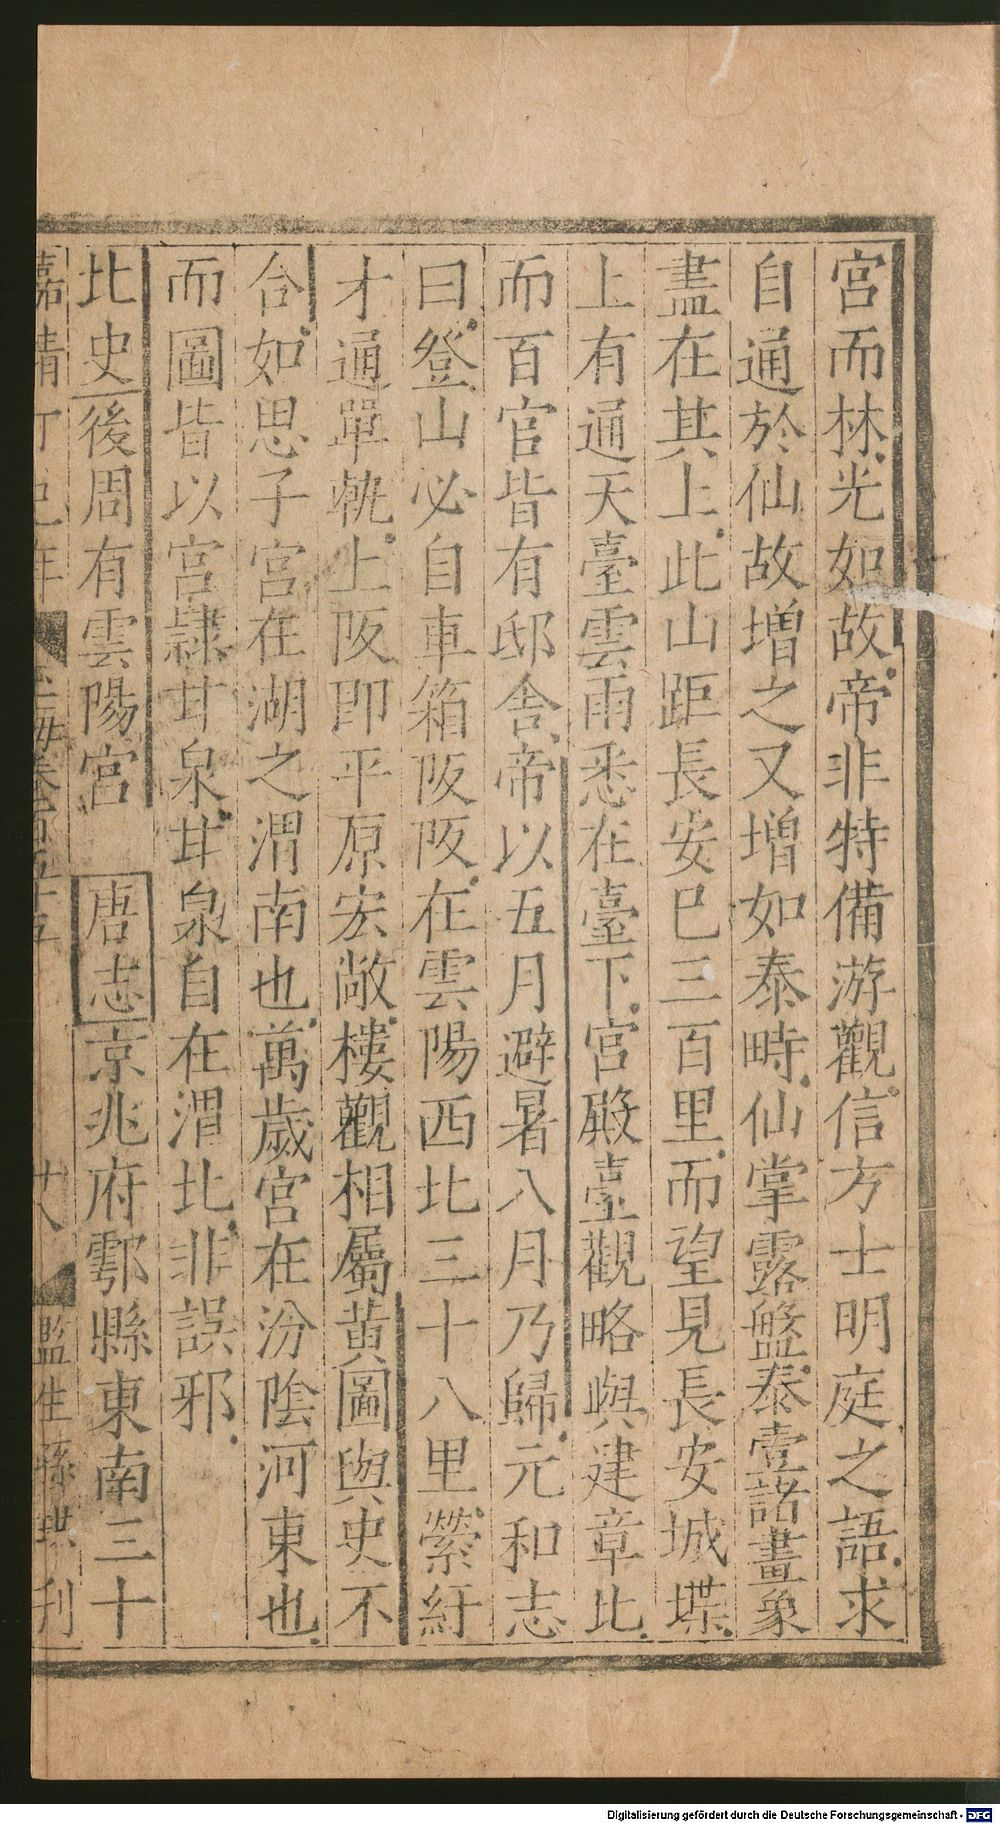 宮而林光如故帝非特備游觀信方士明庭之語求
自通於仙故増之又増如泰畤仙掌露盤泰壹諸畫象
盡在其上此山距長安巳三百里而望見長安城堞
上有通天臺雲雨悉在臺下宮殿臺觀略與建章比
而百官皆有邸舎帝以五月避暑八月乃歸元和志
曰登山必自車箱阪阪在雲陽西北三十八里縈紆
才通單軌上阪即平原宏敞樓觀相屬黄圖與史不
合如思子宮在湖之渭南也萬歲宮在汾陰河東也
而圖皆以宮隷甘泉甘泉自在渭北非誤邪
北史後周有雲陽宮 唐志京兆府鄠縣東南三十
嘉靖丁巳年 玉海卷百五十五 廿八 監生孫珙刋
Digitalisierung gefördert durch die Deutsche Forschungsgemeinschaft - DFG